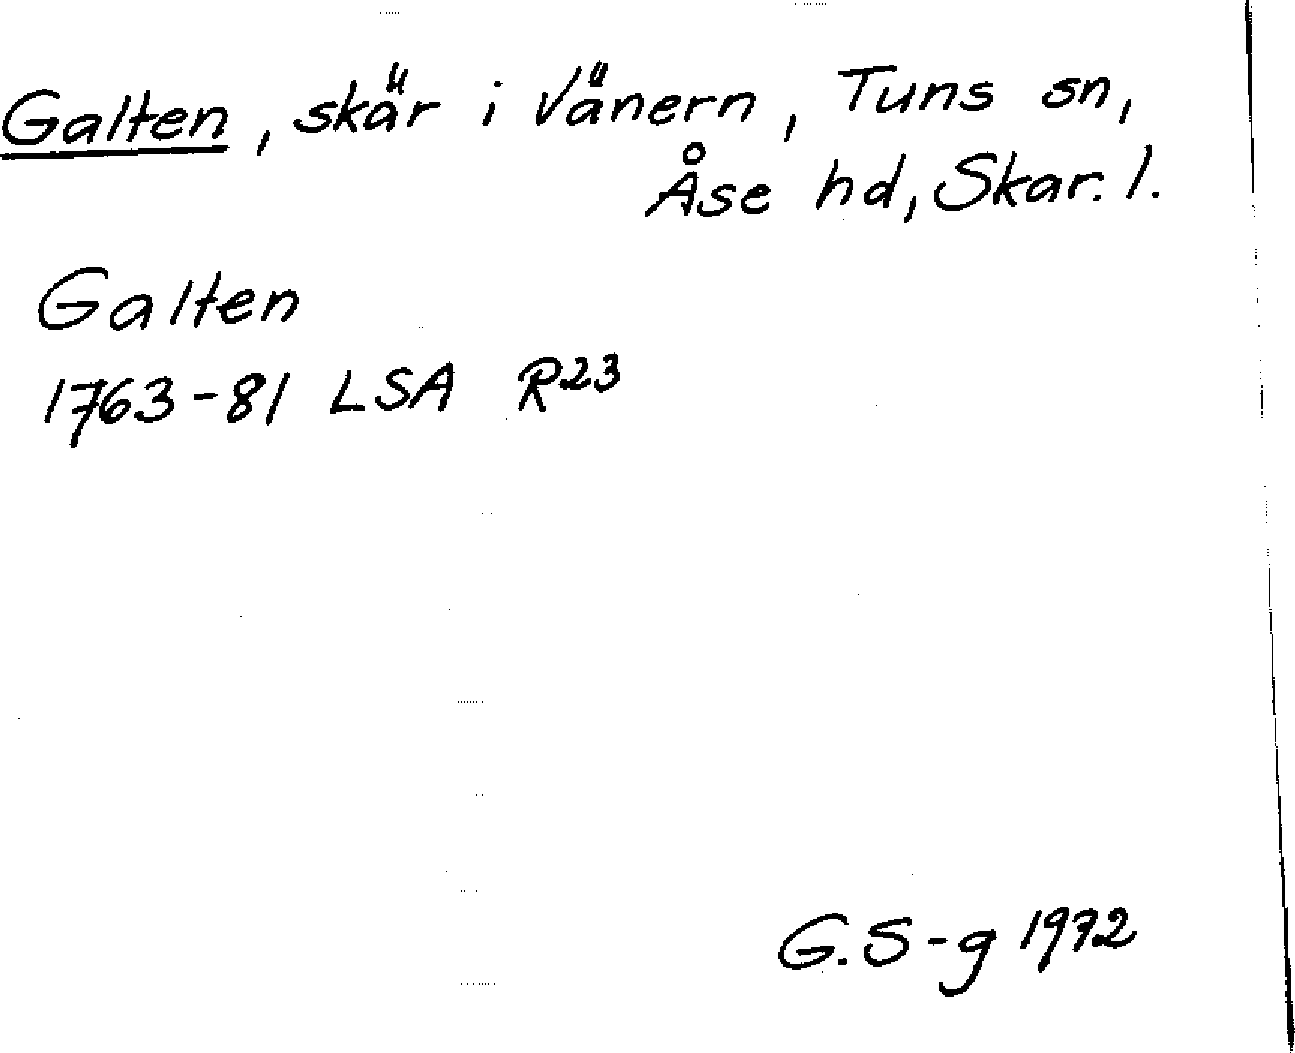 Galten, skär i Vänern, Tuns sn,
Åse hd, Skar. l.
Galten
1763-81 LSA R23
G. S-g 1972